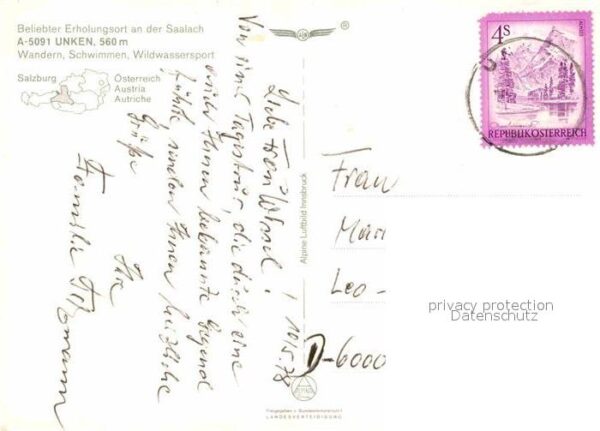 Beliebter Erholungsort an der Saalach
A-5091 UNKEN, 560 m
Wandern, Schwimmen, Wildwassersport
Salzburg
Österreich
Austria
Autriche
Liebe Frau
10.5.78
Von einer Tagestour, die durch eine
Ihnen bekannte Gegend
führte senden Ihnen herzliche
Grüße
Ihre
Familie
Alpine Luftbild Innsbruck
Freigegeben v. Bundesministerium f.
LANDESVERTEIDIGUNG
4S
ALMSEE
REPUBLIK ÖSTERREICH
Frau
Mar
Leo-
D-6000
privacy protection
Datenschutz